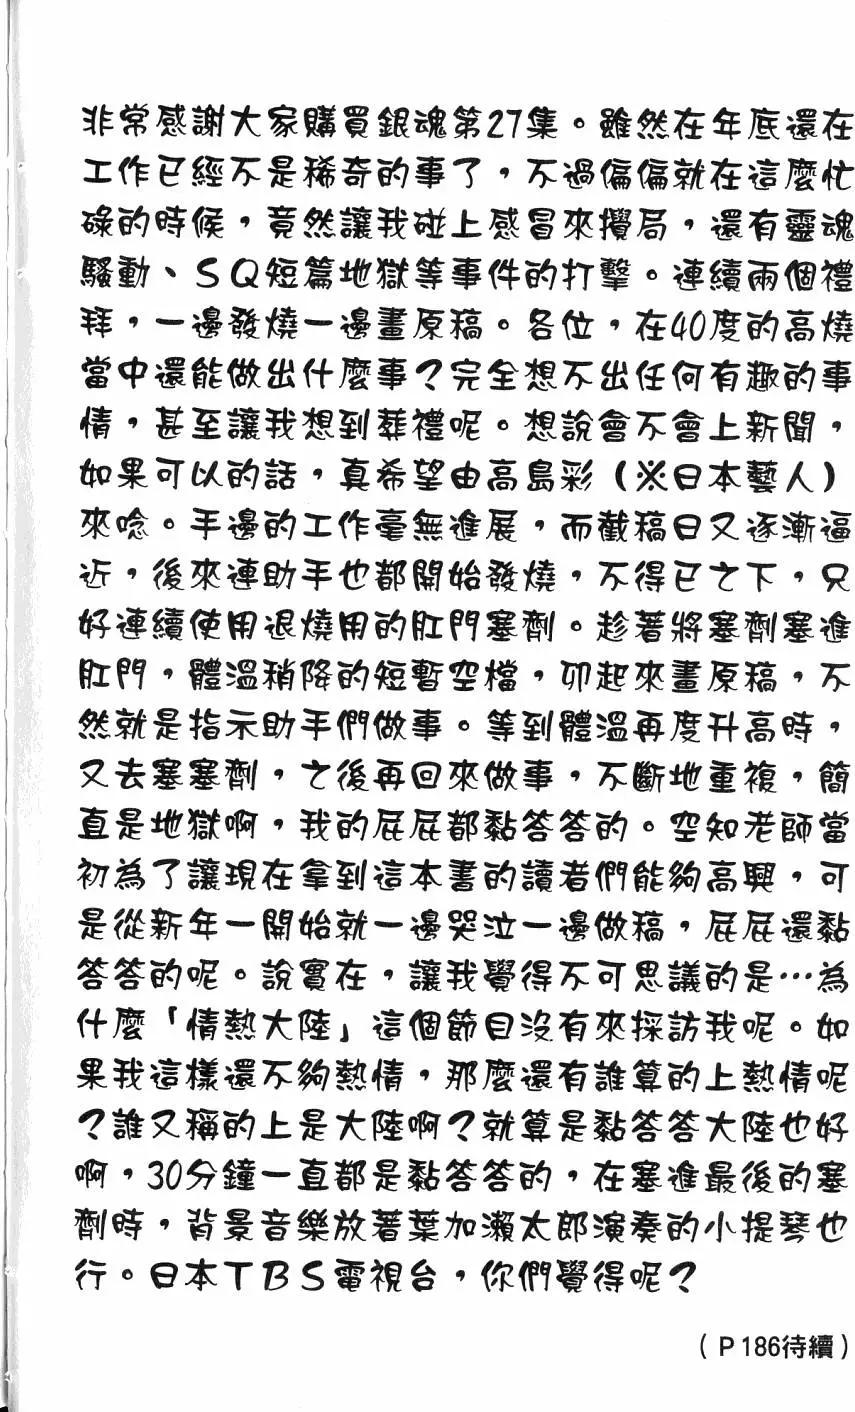 非常感謝大家購買銀魂第27集。雖然在年底還在
工作已經不是稀奇的事了，不過偏偏就在這麼忙
碌的時候，竟然讓我碰上感冒來攪局，還有靈魂
騷動、ＳＱ短篇地獄等事件的打擊。連續兩個禮
拜，一邊發燒一邊畫原稿。各位，在40度的高燒
當中還能做出什麼事？完全想不出任何有趣的事
情，甚至讓我想到葬禮呢。想說會不會上新聞，
如果可以的話，真希望由高島彩（※日本藝人）
來唸。手邊的工作毫無進展，而截稿日又逐漸逼
近，後來連助手也都開始發燒，不得已之下，只
好連續使用退燒用的肛門塞劑。趁著將塞劑塞進
肛門，體溫稍降的短暫空檔，卯起來畫原稿，不
然就是指示助手們做事。等到體溫再度升高時，
又去塞塞劑，之後再回來做事，不斷地重複，簡
直是地獄啊，我的屁屁都黏答答的。空知老師當
初為了讓現在拿到這本書的讀者們能夠高興，可
是從新年一開始就一邊哭泣一邊做稿，屁屁還黏
答答的呢。說實在，讓我覺得不可思議的是…為
什麼「情熱大陸」這個節目沒有來採訪我呢。如
果我這樣還不夠熱情，那麼還有誰算的上熱情呢
？誰又稱的上是大陸啊？就算是黏答答大陸也好
啊，30分鐘一直都是黏答答的，在塞進最後的塞
劑時，背景音樂放著葉加瀨太郎演奏的小提琴也
行。日本ＴＢＳ電視台，你們覺得呢？
（Ｐ186待續）